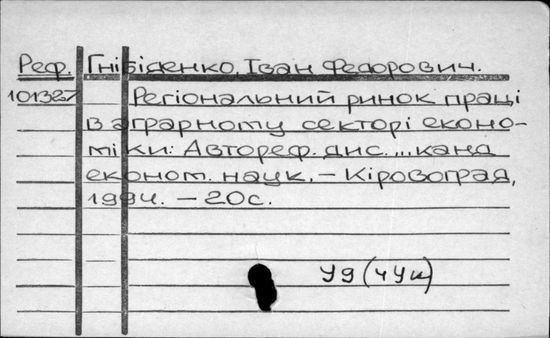 Реф. Гнібіденко, Іван Федорович.
101387 Регіональний ринок праці
в аграрному секторі еконо-
міки: Автореф. дис. ... канд
економ. наук. – Кіровоград,
1994. – 20с.
У9(4Ук)